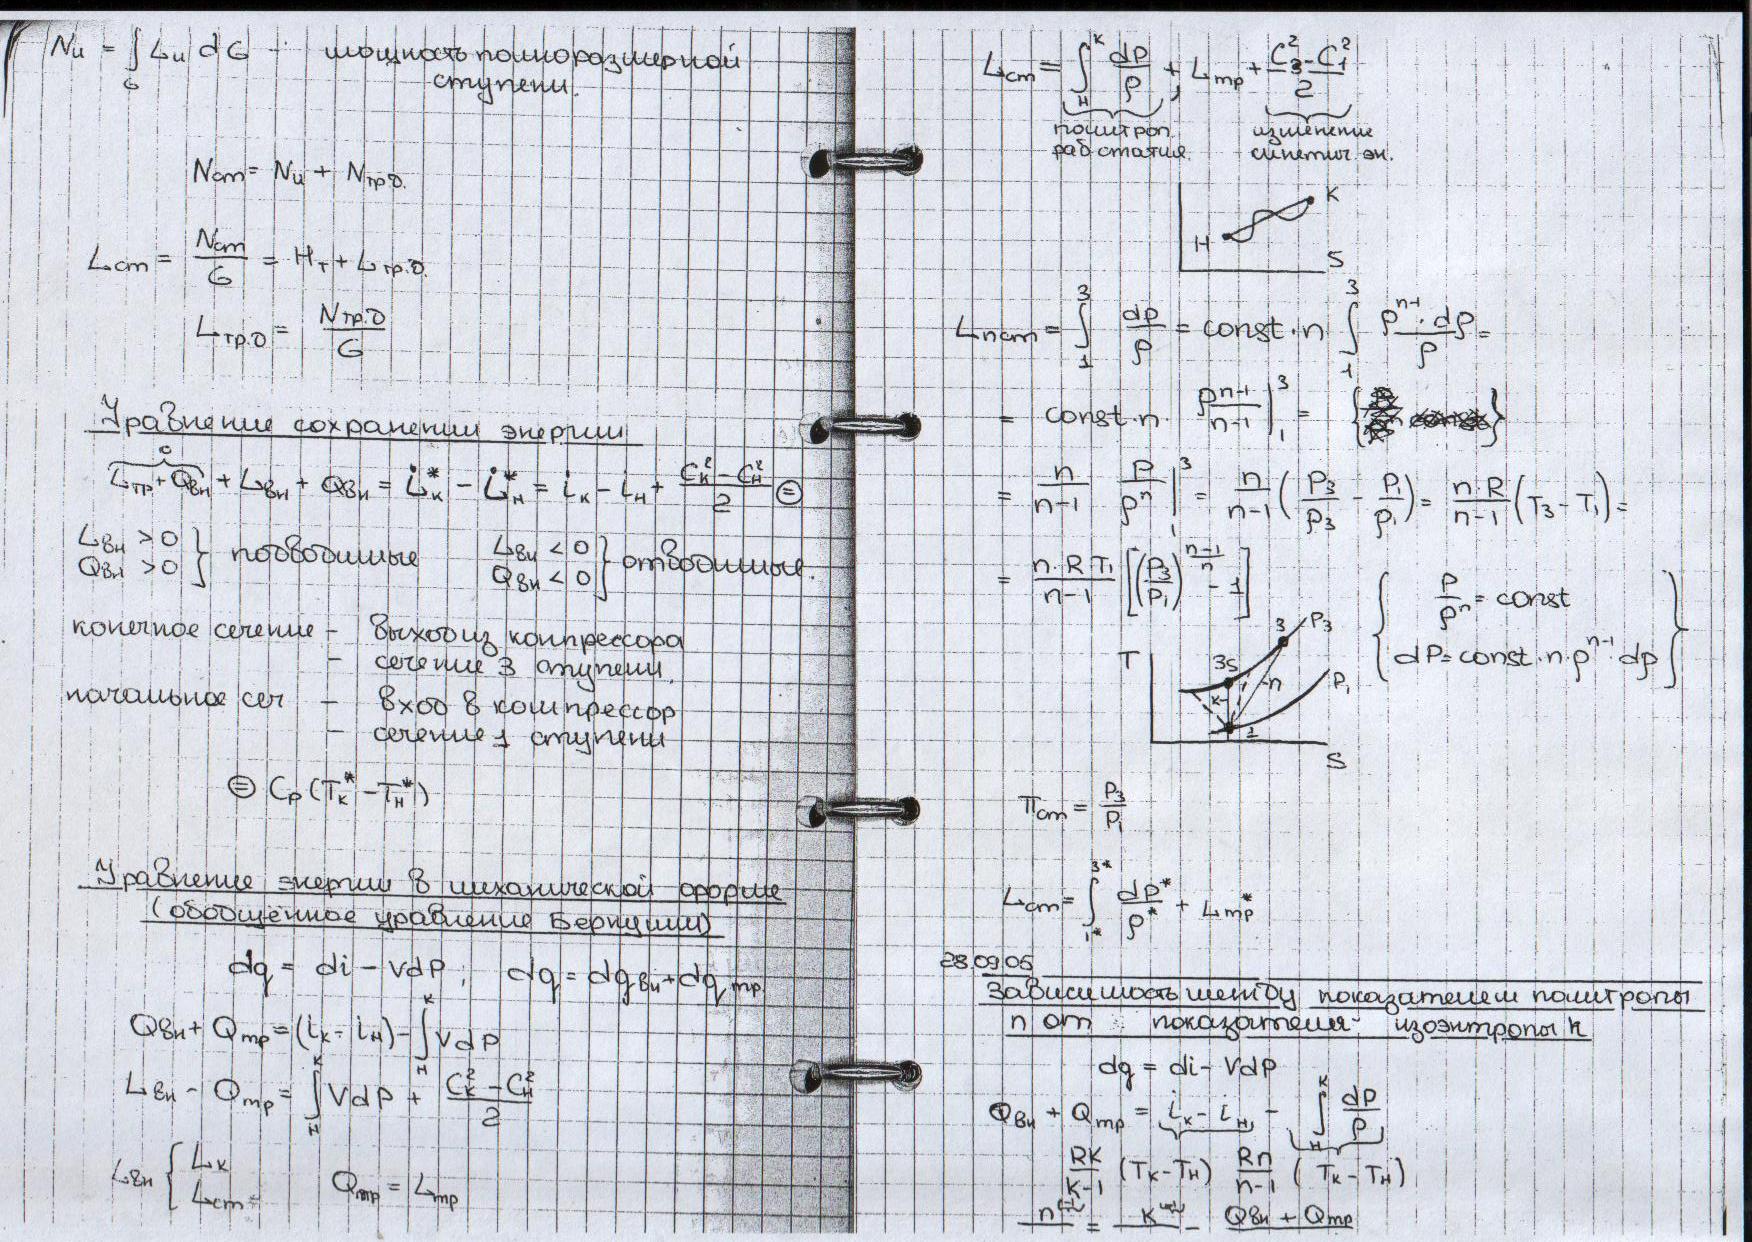 Nи = ∫_G Lи dG - мощность полноразмерной
ступени.
Nст = Nи + Nтр.д.
Lст = Nст/G = Hт + Lтр.д.
Lтр.д = Nтр.д/G
Уравнение сохранении энергии
Lтр + Qвн (0) + Lвн + Qвн = i*к - i*н = iк - iн + (Cк² - Cн²)/2 ⊜
Lвн > 0
Qвн > 0 } подводимые
Lвн < 0
Qвн < 0 } отводимые.
конечное сечение - выход из компрессора
- сечение 3 ступени.
начальное сеч - вход в компрессор
- сечение 1 ступени
⊜ Cp (Tк* - Tн*)
Уравнение энергии в механической форме
(обобщённое уравнение Бернулли)
dq = di - VdP; dq = dqвн + dqтр
Qвн + Qтр = (iк - iн) - ∫_н^к VdP
Lвн - Qтр = ∫_н^к VdP + (Cк² - Cн²)/2
Lвн { Lк
Lст = Qтр = Lтр
Lст = ∫_н^к dP/ρ + Lтр + (C3² - C1²)/2
политроп. изменение
раб сжатия. кинетич. эн.
K
H
S
Lпст = ∫_1^3 dp/ρ = const·n ∫_1^3 ρ^(n-1)·dρ/ρ =
= const·n· ρ^(n-1)/(n-1) |_1^3 =
= n/(n-1) P/ρ^n |_1^3 = n/(n-1) (P3/ρ3 - P1/ρ1) = n·R/(n-1) (T3 - T1) =
= n·R T1/(n-1) [(P3/P1)^((n-1)/n) - 1]
{ P/ρ^n = const
dP = const·n·ρ^(n-1)·dρ }
T
3
P3
3s
n
P1
K
1
S
πст = P3/P1
Lст = ∫_1*^3* dP*/ρ* + Lтр*
28.09.05
Зависимость между показателем политропы
n от показателя изоэнтропы k
dq = di - VdP
Qвн + Qтр = iк - iн - ∫_н^к dP/ρ
RK/(K-1) (Tк - Tн) Rn/(n-1) (Tк - Tн)